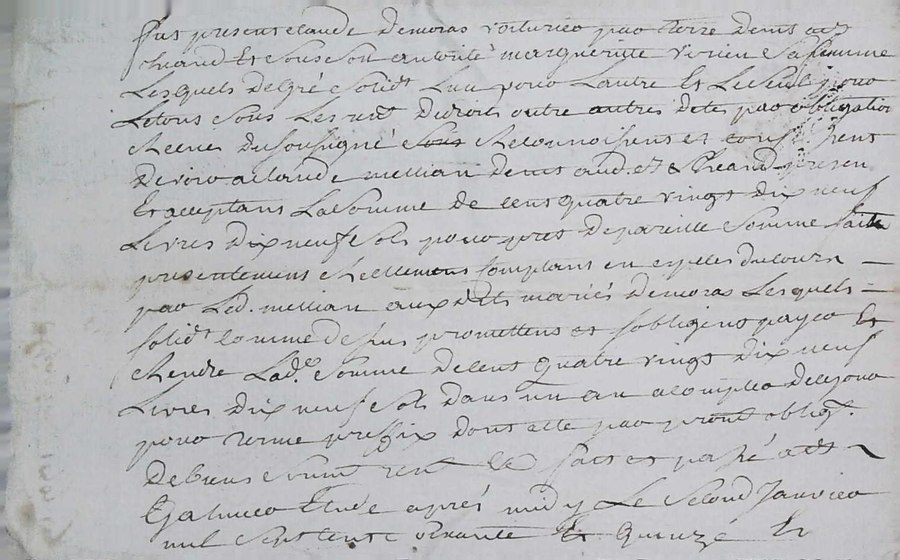 fut present claude Demoras voiturier par terre Demt au d
chand Et sous son autorité marguerite verien sa femme
Lesquels de gré solidt Lun pour Lautre Et Le seul pour
Le tous sous Les rent de droit outre autres dete par obligation
cheene du soussigné chelonnoissent et confessent
Devoir a claude mellian Demt aud. et chand present
Et acceptant La somme de cent quatre vingt dix neuf
Livres dix neuf sols pour pret de pareille somme faite
presentement chellement comptant en espesses du cours
par Led. mellian aux dits mariés Demoras Lesquels
solidt comme dessus promettent et sobligent payer Et
chendre Lade. somme de cent quatre vingt dix neuf
Livres dix neuf sols dans un an a compter de ce jour
pour terme prefix dont acte par promt obligt.
De biens soumt rent &c fait et passé a dt
Etude apres midy Le second Janvier
mil sept cents soixante Et quinze Et